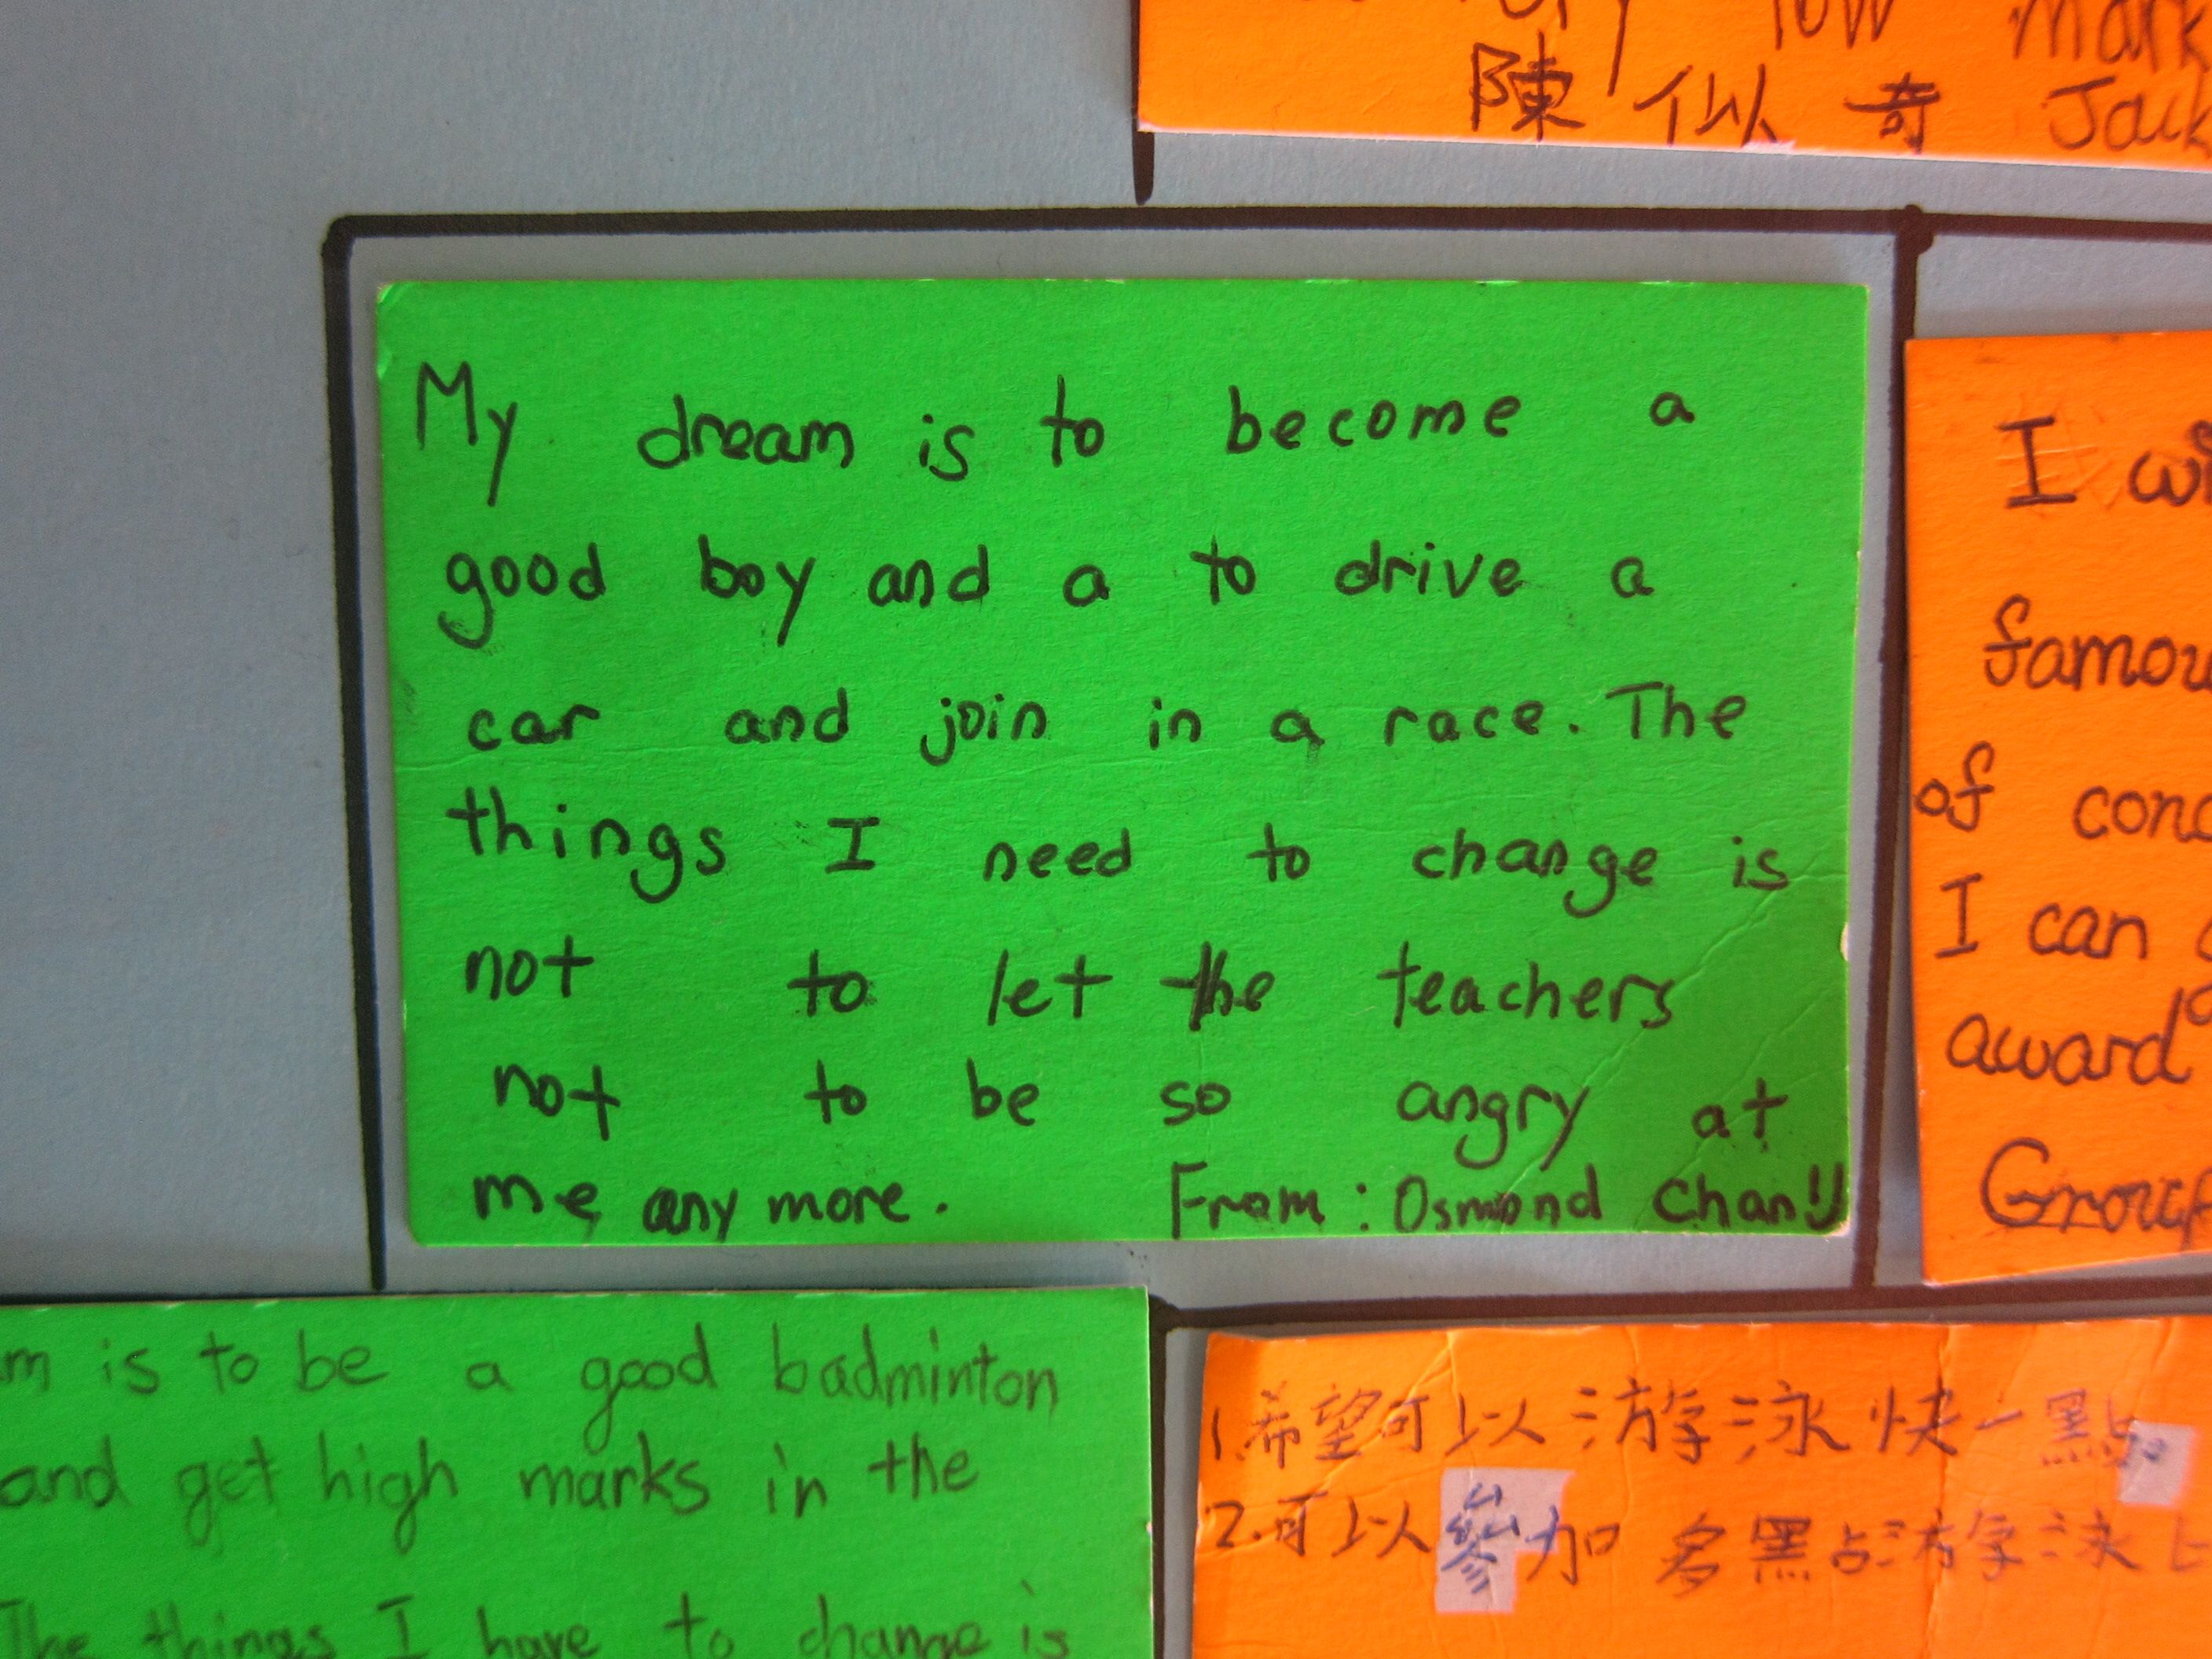 low mark
陳 似 奇 Jack
My dream is to become a
good boy and a to drive a
car and join in a race. The
things I need to change is
not to let the teachers
not to be so angry at
me any more. From: Osmond Chan
I
famou
of conc
I can
award
Group
m is to be a good badminton
and get high marks in the
The things I have to change is
1.希望可以游泳快一點。
2.可以參加多點游泳